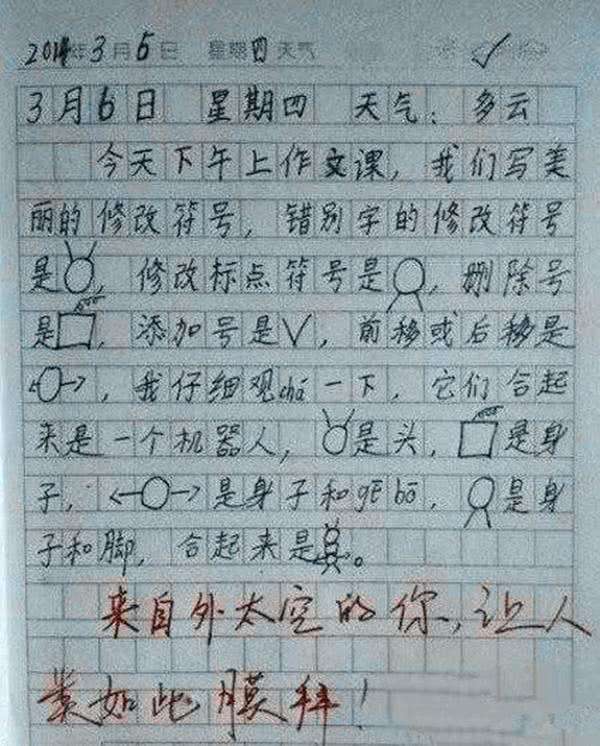 2014年3月6日 星期四天气
3月6日 星期四 天气：多云
今天下午上作文课，我们写美
丽的修改符号，错别字的修改符号
是，修改标点符号是，删除号
是，添加号是∨，前移或后移是
，我仔细观chá一下，它们合起
来是一个机器人，是头，是身
子，是身子和gē bō，是身
子和脚，合起来是。
来自外太空的你，让人
如此膜拜！